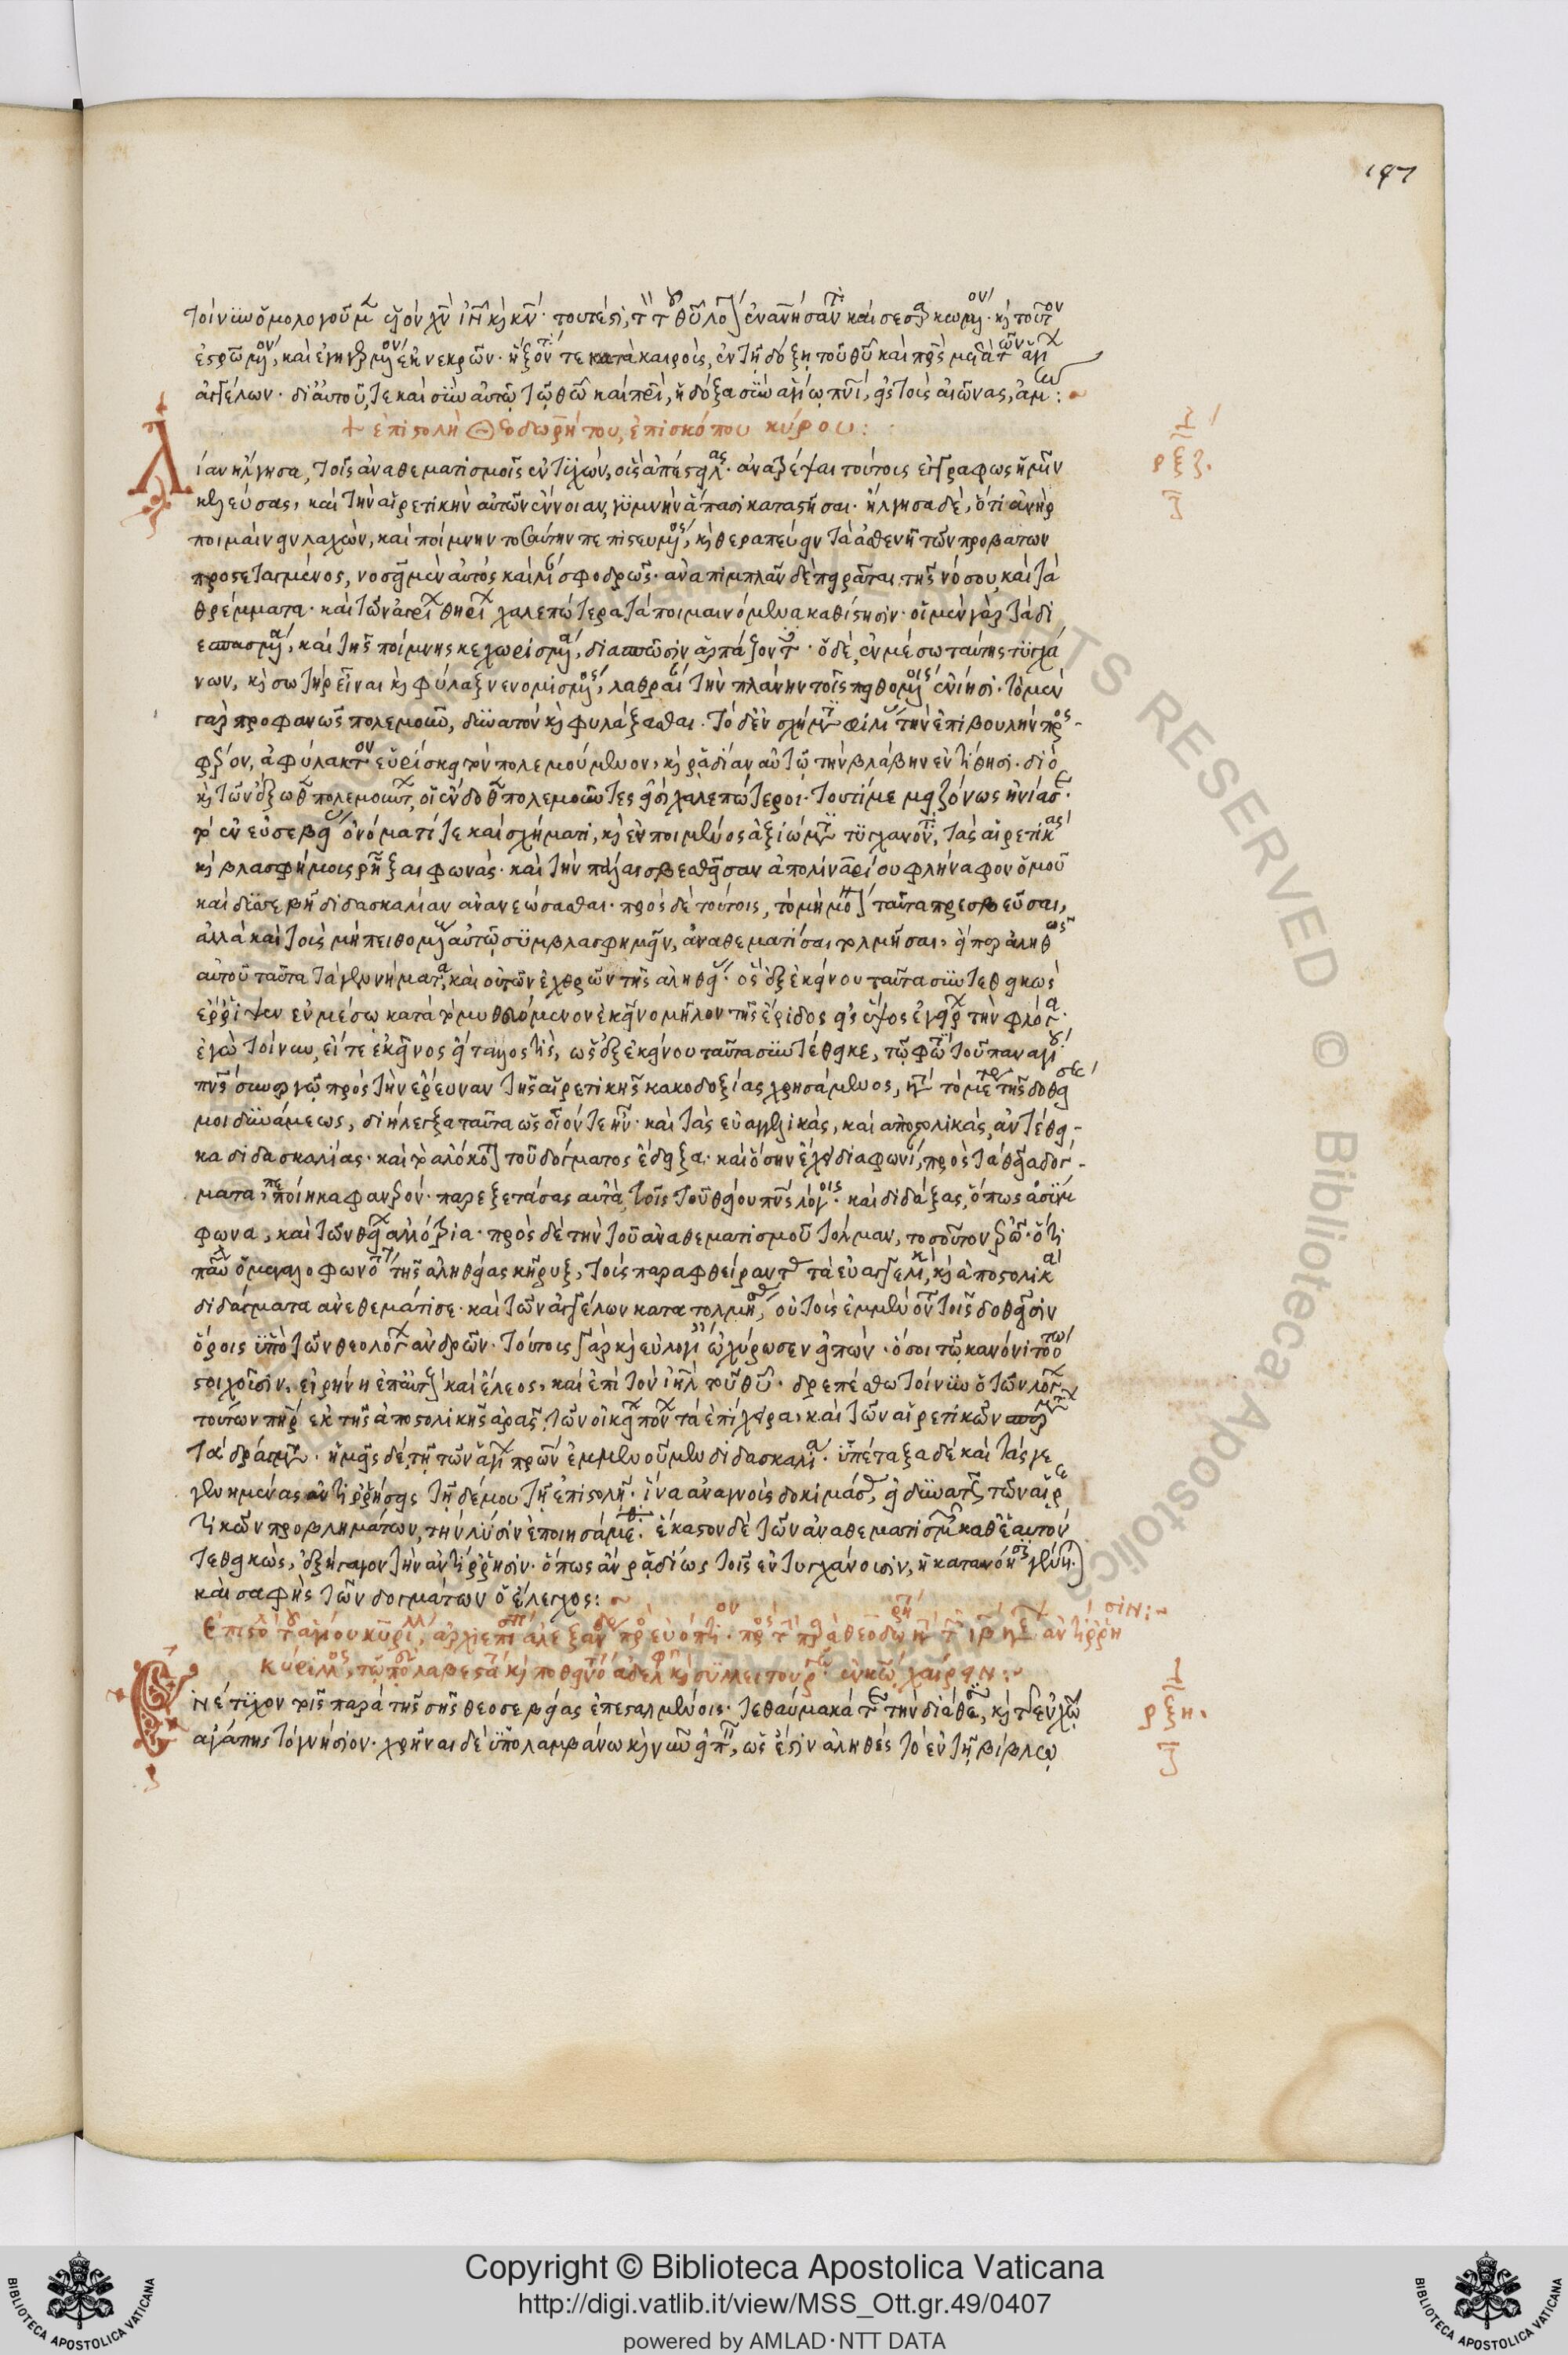 197
τοίνυν ὁμολογοῦμεν υἱὸν χν ιν κὺ κν. τουτέστι, τὸν τοῦ θυ λόγον ἐνανθρωπήσαντα καὶ σεσαρκωμένον. καὶ τοῦτον
ἐστρωμένον, καὶ ἐγηγερμένον ἐκ νεκρῶν. ἥξοντά τε κατὰ καιροὺς, ἐν τῇ δόξῃ τοῦ θυ καὶ πρς μετὰ τῶν ἁγίων
ἀγγέλων. δι' αὐτοῦ, τε καὶ σὺν αὐτῷ τῷ θω καὶ πρι, ἡ δόξα σὺν ἁγίῳ πνι, εἰς τοὺς αἰῶνας, ἀμήν:
+ ἐπιστολὴ Θεοδωρήτου, ἐπισκόπου κύρου:
Λίαν ἤλγησα, τοῖς ἀναθεματισμοῖς ἐντυχὼν, οἷς ἀπέστειλας. ἀνατρέψαι τούτοις ἐγγράφως ἡμῖν
κελεύσας, καὶ τὴν αἱρετικὴν αὐτῶν ἔννοιαν, γυμνὴν ἅπασι καταστῆσαι. ἤλγησα δὲ, ὅτι ἀνὴρ
ποιμαίνειν λαχὼν, καὶ ποίμνην τοσαύτην πεπιστευμένος, καὶ θεραπεύειν τὰ ἀσθενῆ τῶν προβάτων
προστεταγμένος, νοσεῖ μὲν αὐτὸς καὶ λίαν σφοδρῶς. ἀναπιμπλᾶν δὲ πειρᾶται τῆς νόσου, καὶ τὰ
θρέμματα. καὶ τῶν ἀγρίων θηρίων χαλεπώτερα τὰ ποιμαινόμενα καθίστησιν. οἱ μὲν γὰρ τὰ δι
εσπασμένα, καὶ τῆς ποίμνης κεχωρισμένα, διασπῶσιν ἁρπάζοντες. ὁ δὲ, ἐν μέσῳ ταύτης τυγχά
νων, καὶ σωτὴρ εἶναι καὶ φύλαξ νενομισμένος, λαθραίαν τὴν πλάνην τοῖς πειθομένοις ἐνίησι. τὸ μὲν
γὰρ προφανῶς πολεμοῦν, δυνατὸν καὶ φυλάξασθαι. τὸ δὲ ἐν σχήματι φιλίας τὴν ἐπιβουλὴν προσ-
φέρον, ἀφύλακτον εὑρίσκει τὸν πολεμούμενον, καὶ ῥᾳδίαν αὐτῷ τὴν βλάβην ἐντίθησι. διὸ
καὶ τῶν ἔξωθεν πολεμούντων, οἱ ἔνδοθεν πολεμοῦντες εἰσὶ χαλεπώτεροι. τοῦτί με μειζόνως ἠνίασε.
τὸ ἐν εὐσεβείας ὀνόματί τε καὶ σχήματι, καὶ ἐν ποιμένος ἀξιώματι τυγχάνοντα, τὰς αἱρετικὰς
καὶ βλασφήμους ῥῆξαι φωνάς. καὶ τὴν πάλαι σβεσθεῖσαν ἀπολιναρίου φλήναφον ὁμοῦ
καὶ δυσσεβῆ διδασκαλίαν ἀνανεώσασθαι. πρὸς δὲ τούτοις, τὸ μὴ μόνον ταῦτα πρεσβεῦσαι,
ἀλλὰ καὶ τοὺς μὴ πειθομένους αὐτῷ συμβλασφημεῖν, ἀναθεματίσαι τολμῆσαι. εἴπερ ἀληθῶς
αὐτοῦ ταῦτα τὰ γεννήματα, καὶ οὐ τῶν ἐχθρῶν τῆς ἀληθείας. ὃς ἐξ ἐκείνου ταῦτα συντεθεικὼς
ἔρριψεν ἐν μέσῳ κατὰ τὸ μυθευόμενον ἐκεῖνο μῆλον τῆς ἔριδος εἰς ὕψος ἐγείρων τὴν φλόγα.
ἐγὼ τοίνυν, εἴτε ἐκεῖνος εἴτ' ἄλλος τις, ὡς ἐξ ἐκείνου ταῦτα συντέθεικε, τῷ φωτὶ τοῦ παναγίου
πνς συνεργῷ πρὸς τὴν ἔρευναν τῆς αἱρετικῆς κακοδοξίας χρησάμενος, κατὰ τὸ μέτρον τῆς δοθείσης
μοι δυνάμεως, διήλεγξα ταῦτα ὡς οἷόν τε ἦν. καὶ τὰς εὐαγγελικὰς, καὶ ἀποστολικὰς, ἀντέθει-
κα διδασκαλίας. καὶ τὸ ἀλόκοτον τοῦ δόγματος ἔδειξα. καὶ ὅσην ἔχει διαφωνίαν, πρὸς τὰ θεῖα δόγ-
ματα, πεποίηκα φανερόν. παρεξετάσας αὐτὰ, τοῖς τοῦ θείου πνς λόγοις. καὶ διδάξας, ὅπως ἀσύμ
φωνα, καὶ τῶν θείων ἀλλότρια. πρὸς δὲ τὴν τοῦ ἀναθεματισμοῦ τόλμαν, τοσοῦτον ἐρῶ. ὅτι
παῦλος ὁ μεγαλοφωνότατος τῆς ἀληθείας κῆρυξ, τοὺς παραφθείραντας τὰ εὐαγγελικὰ, καὶ ἀποστολικὰ
διδάγματα ἀνεθεμάτισε. καὶ τῶν ἀγγέλων κατατολμήσας, οὐ τοῖς ἐμμένουσι τοῖς δοθεῖσιν
ὅροις ὑπὸ τῶν θεολόγων ἀνδρῶν. τούτοις γὰρ καὶ εὐλογίαις ὠχύρωσεν εἰπών. ὅσοι τῷ κανόνι τούτῳ
στοιχοῦσιν, εἰρήνη ἐπ' αὐτοὺς καὶ ἔλεος, καὶ ἐπὶ τὸν ιηλ τοῦ θυ. δρεπέσθω τοίνυν ὁ τῶν λόγων
τούτων πηρ ἐκ τῆς ἀποστολικῆς ἀρᾶς, τῶν οἰκείων πόνων τὰ ἐπίχειρα, καὶ τῶν αἱρετικῶν σπερμάτων
τὰ δράγματα. ἡμεῖς δὲ, τῇ τῶν ἁγίων πρων ἐμμενοῦμεν διδασκαλίᾳ. ὑπέταξα δὲ καὶ τὰς γε
γενημένας ἀντιρρήσεις τῇδέ μου τῇ ἐπιστολῇ. ἵνα ἀναγνοὺς δοκιμάσῃς, εἰ δυνατῶς τῶν αἱρε
τικῶν προβλημάτων, τὴν λύσιν ἐποιησάμεθα. ἕκαστον δὲ τῶν ἀναθεματισμῶν καθ' ἑαυτὸν
τεθεικὼς, ἐξήγαγον τὴν ἀντίρρησιν. ὅπως ἂν ῥᾳδίως τοῖς ἐντυγχάνουσιν, ἡ κατανόησις γένηται
καὶ σαφὴς τῶν δογμάτων ὁ ἔλεγχος:
Ἐπιστολὴ τοῦ ἁγίου κυρίλλου, ἀρχιεπισκόπου ἀλεξανδρείας πρὸς εὐόπτιον. πρὸς τὴν παρὰ θεοδωρήτου κατὰ τῶν ιβ κεφαλαίων ἀντίρρησιν:
Κύριλλος, τῷ πολλὰ σεβαστῷ καὶ ποθεινοτάτῳ ἀδελφῷ καὶ συλλειτουργῷ εὐοπτίῳ ἐν κω χαίρειν:
Ἐνέτυχον τοῖς παρὰ τῆς σῆς θεοσεβείας ἐπεσταλμένοις. τεθαύμακά τε τὴν διάθεσιν, καὶ τῆς ἐν χω
ἀγάπης τὸ γνήσιον. χρῆναι δὲ ὑπολαμβάνω καὶ νῦν εἰπεῖν, ὡς ἔστιν ἀληθὲς τὸ ἐν τῇ βίβλῳ
ρξζ.
ρξη.
Copyright © Biblioteca Apostolica Vaticana
http://digi.vatlib.it/view/MSS_Ott.gr.49/0407
powered by AMLAD·NTT DATA